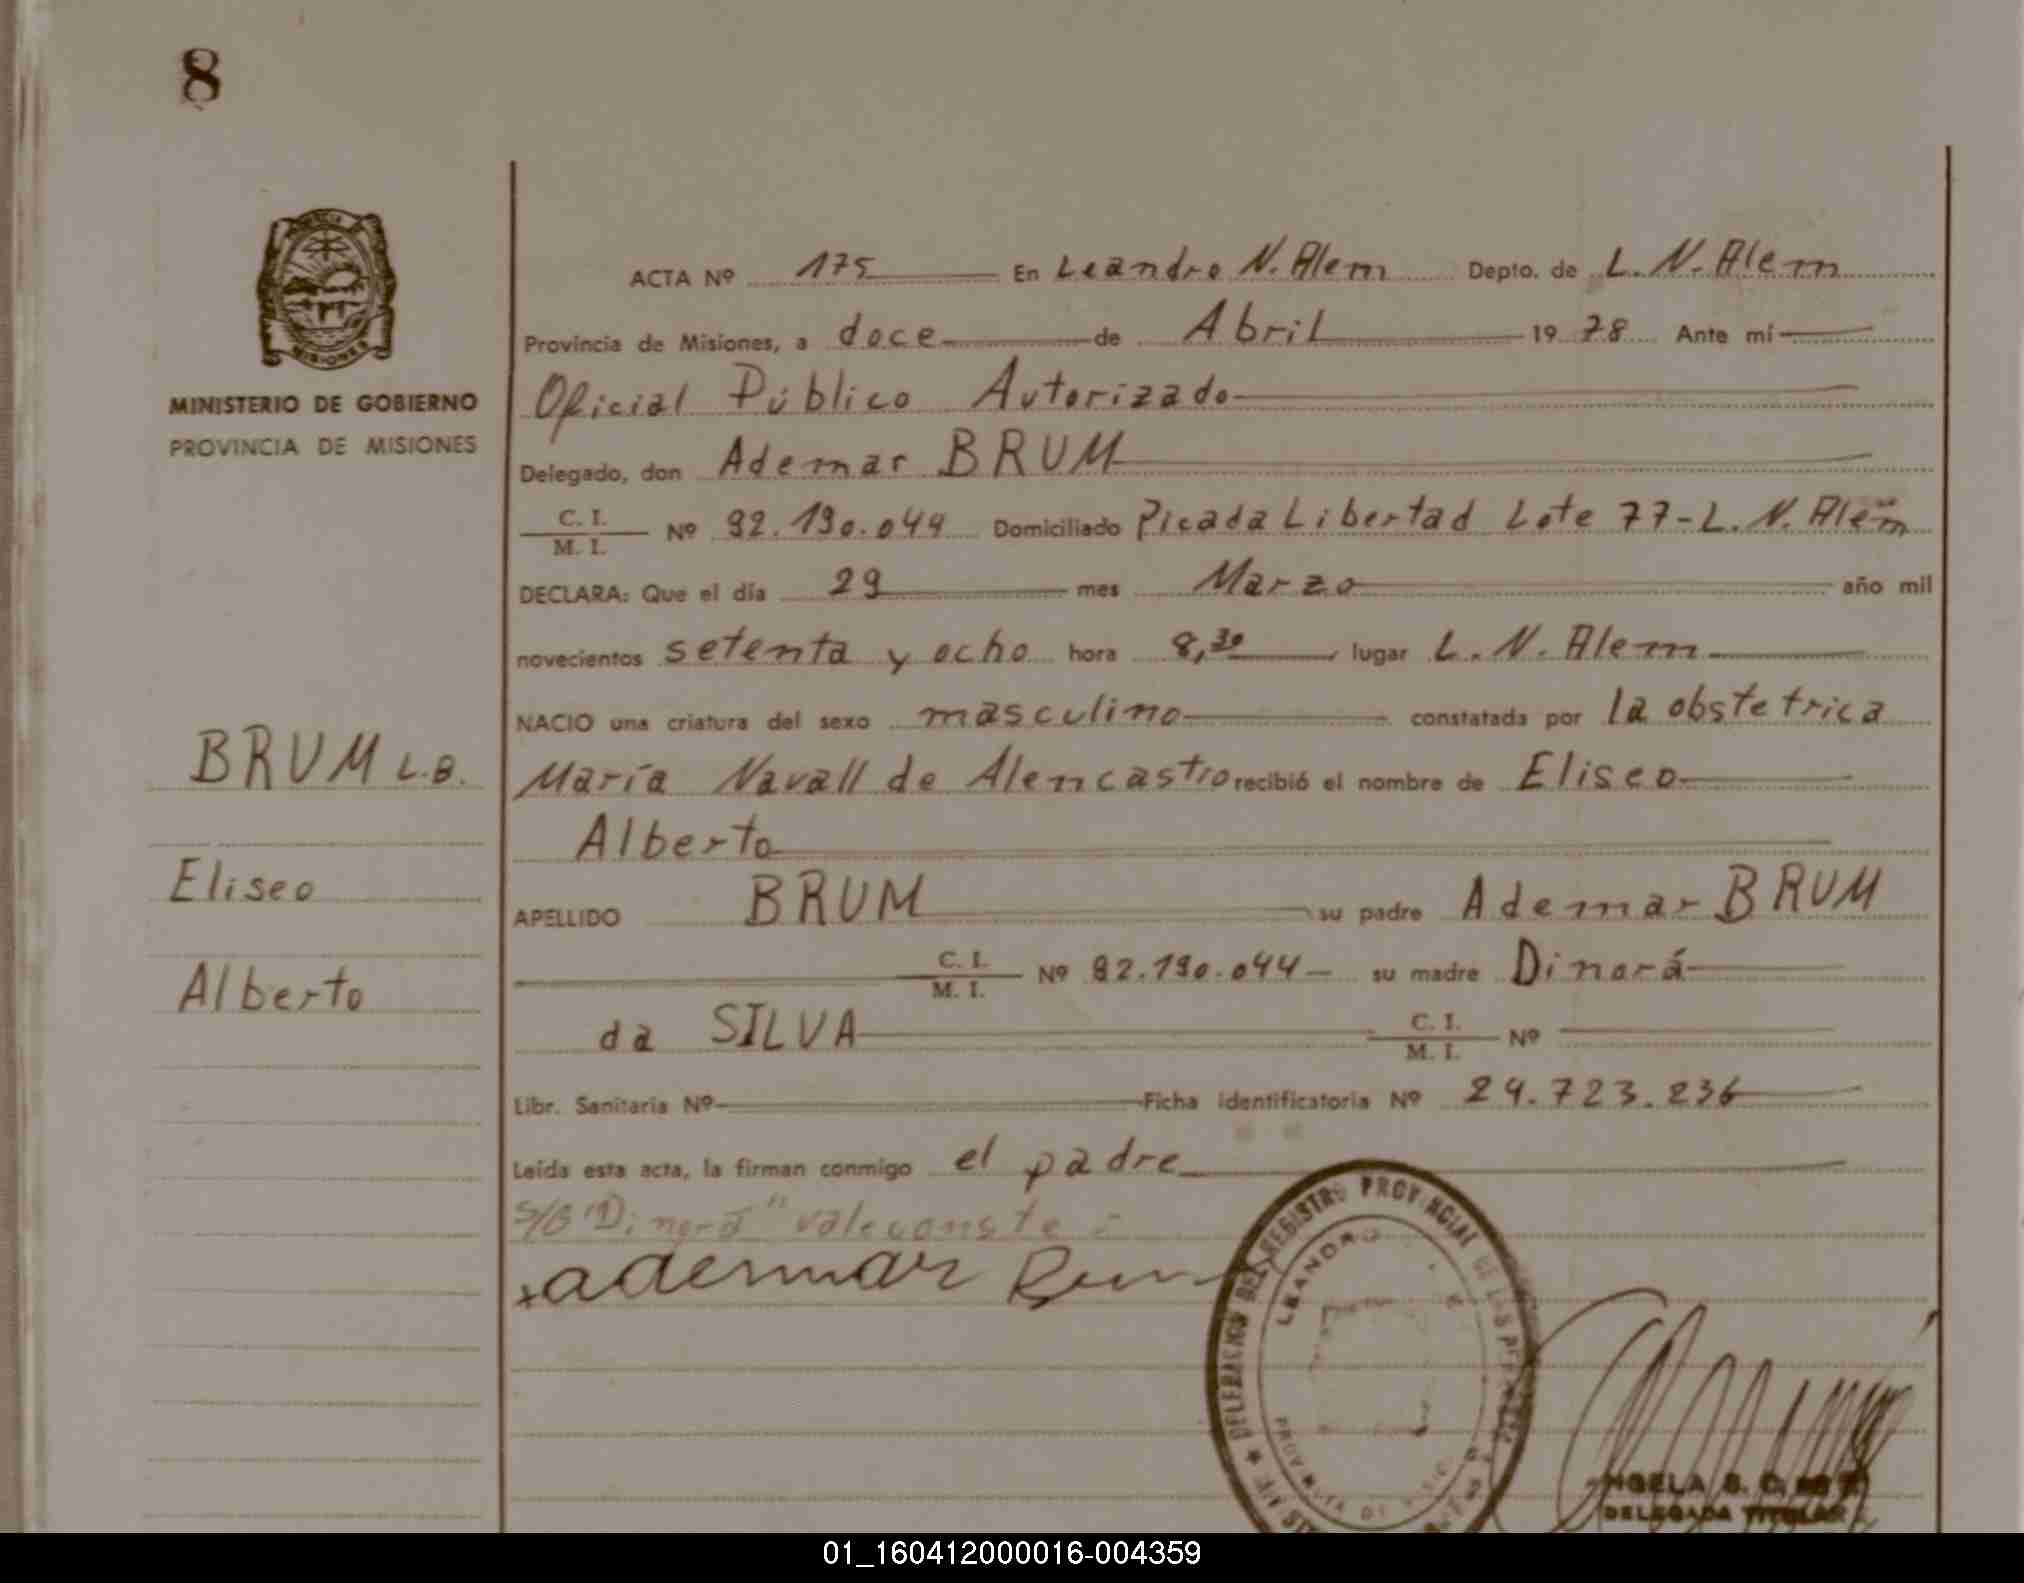 8
MISIONES
MINISTERIO DE GOBIERNO
PROVINCIA DE MISIONES
BRUM L.B.
Eliseo
Alberto
ACTA Nº 175 En Leandro N. Alem Depto. de L. N. Alem
Provincia de Misiones, a doce de Abril 19 78 Ante mí
Oficial Público Autorizado
Delegado, don Ademar BRUM
C. I.
M. I. Nº 92.190.044 Domiciliado Picada Libertad Lote 77-L. N. Alem
DECLARA: Que el día 29 mes Marzo año mil
novecientos setenta y ocho hora 8,30 lugar L. N. Alem
NACIO una criatura del sexo masculino constatada por la obstetrica
María Navall de Alencastro recibió el nombre de Eliseo
Alberto
APELLIDO BRUM su padre Ademar BRUM
C. I.
M. I. Nº 92.190.044 su madre Dinorá
da SILVA C. I.
M. I. Nº
Libr. Sanitaria Nº Ficha identificatoria Nº 24.723.236
Leída esta acta, la firman conmigo el padre
S/B "Dinorá" vale conste
Ademar Brum
REGISTRO PROVINCIAL DE LAS PERSONAS
LEANDRO
DELEGADA TITULAR
01_160412000016-004359